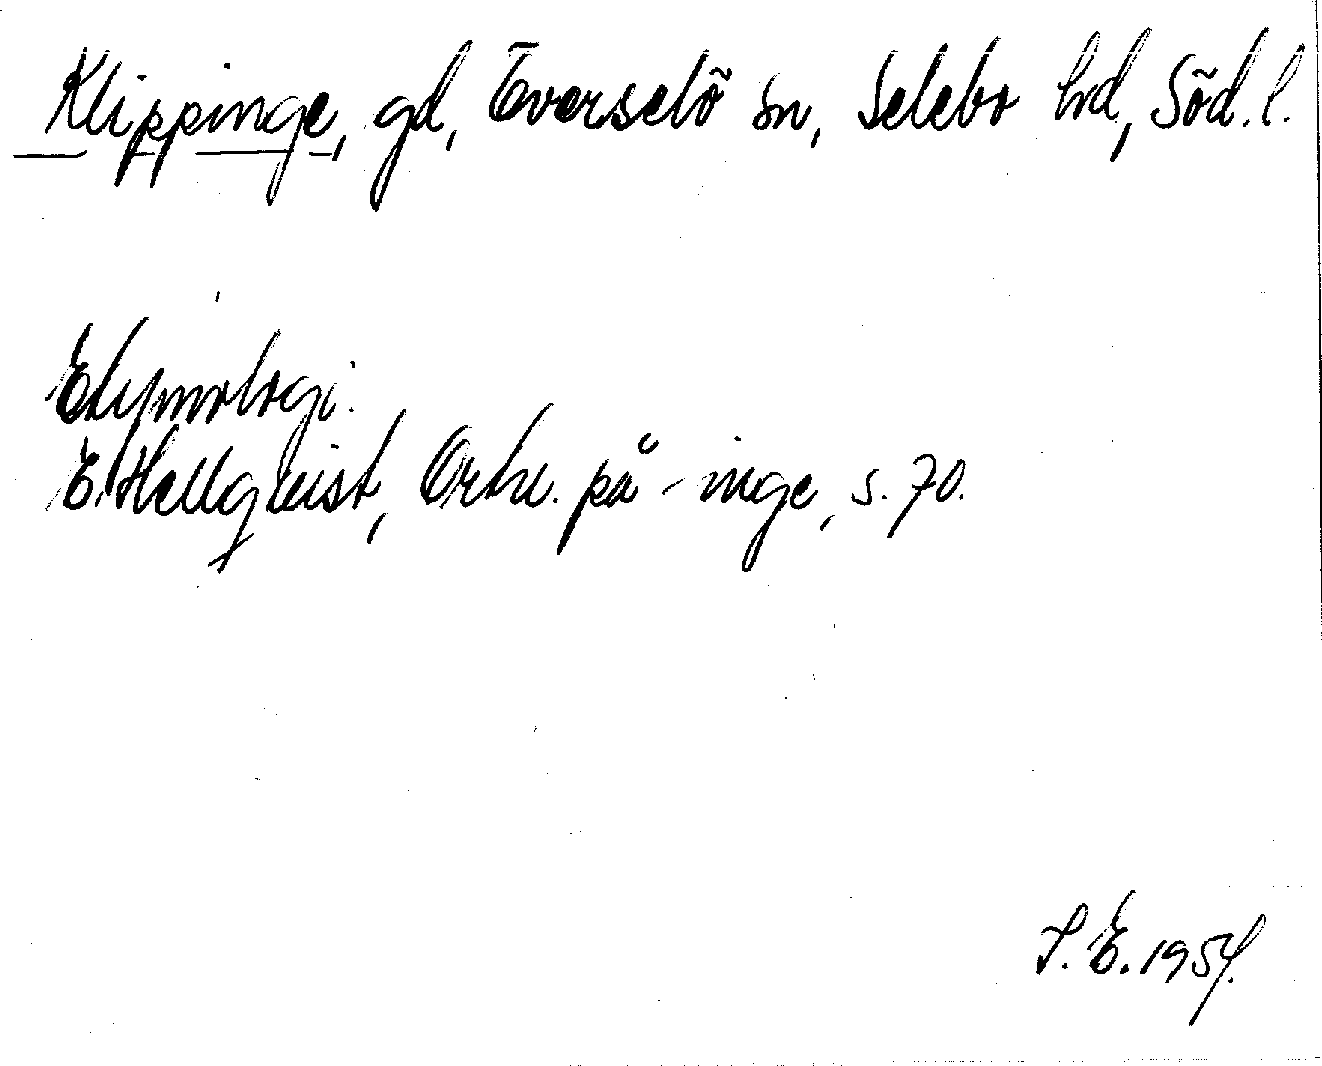 Klippinge, gd, Överselö sn, Selebo hd, Söd. l.
Etymologi.
E. Hellquist, Ortn. på -inge, s. 70.
S. E. 1954.